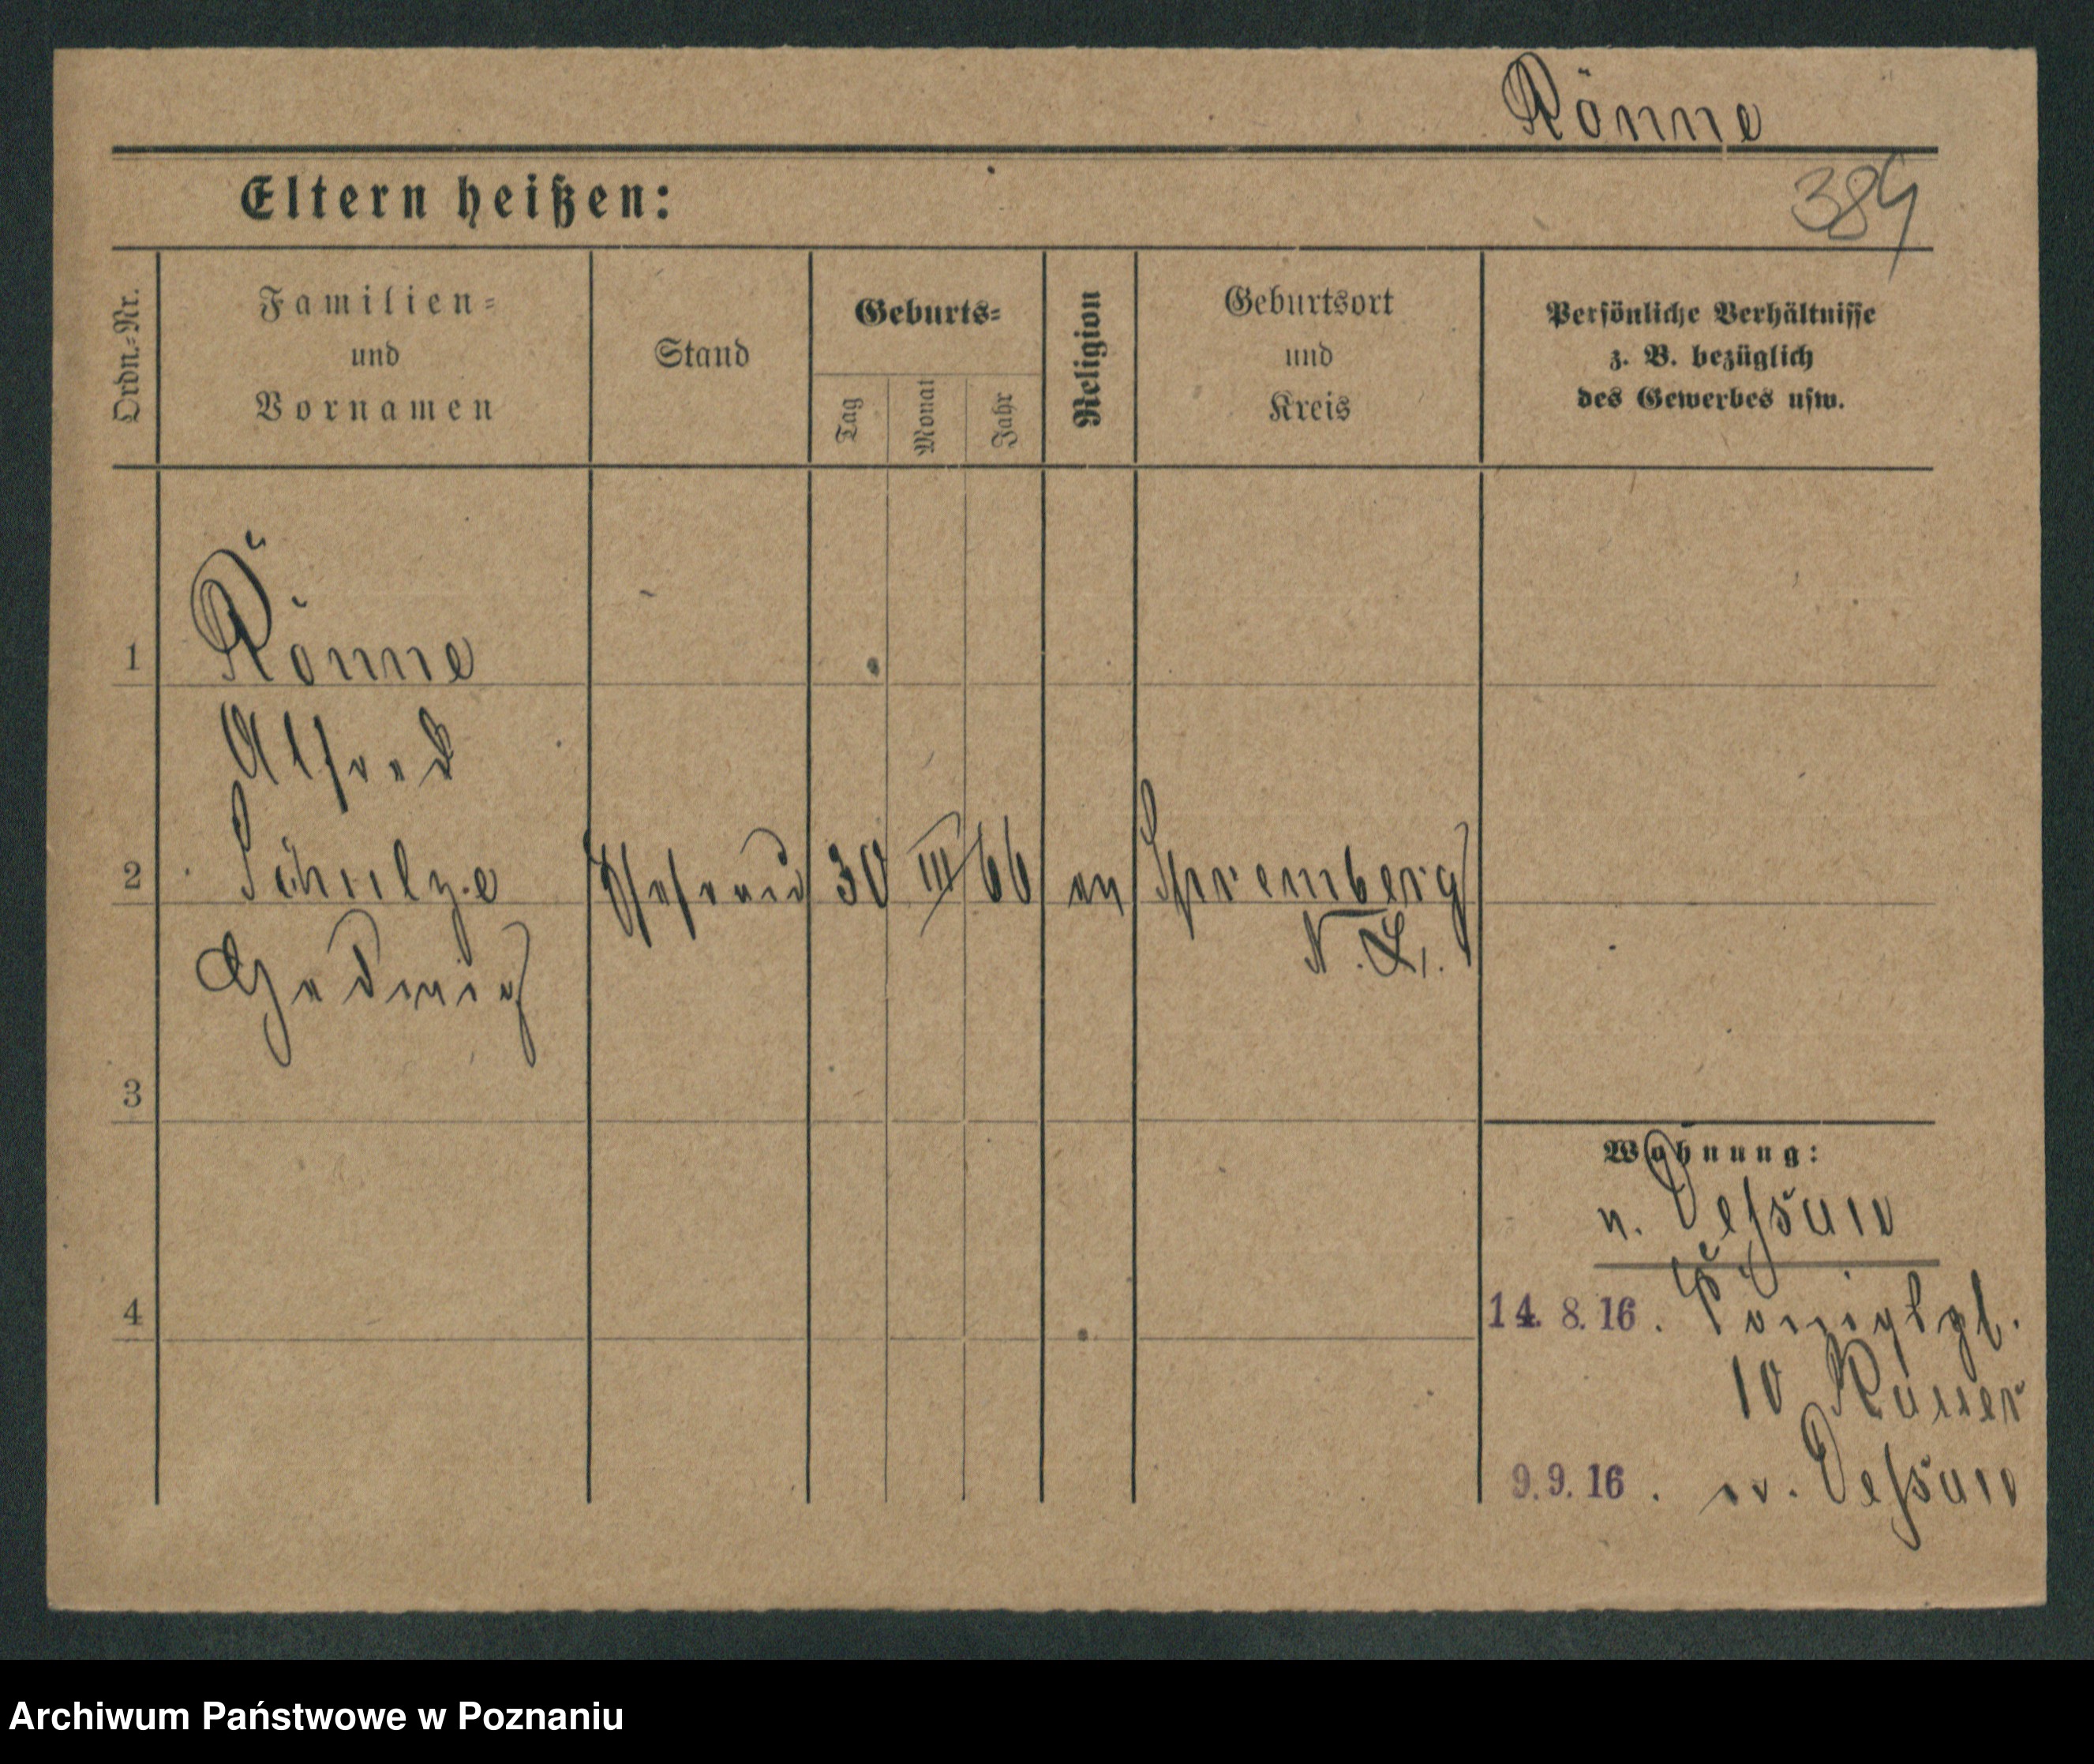 Rönne
384
Eltern heißen:
Ordn.-Nr.
Familien-
und
Vornamen
Stand
Geburts-
Tag
Monat
Jahr
Religion
Geburtsort
und
Kreis
Persönliche Verhältnisse
z. B. bezüglich
des Gewerbes usw.
1
Rönne
Alfred
2
Schulze
Ehefrau
30
III
66
ev
Spremberg
N. L.
Hedwig
3
4
Wohnung:
n. Dessau
14. 8. 16. Königspl.
10
9. 9. 16. n. Dessau
Archiwum Państwowe w Poznaniu